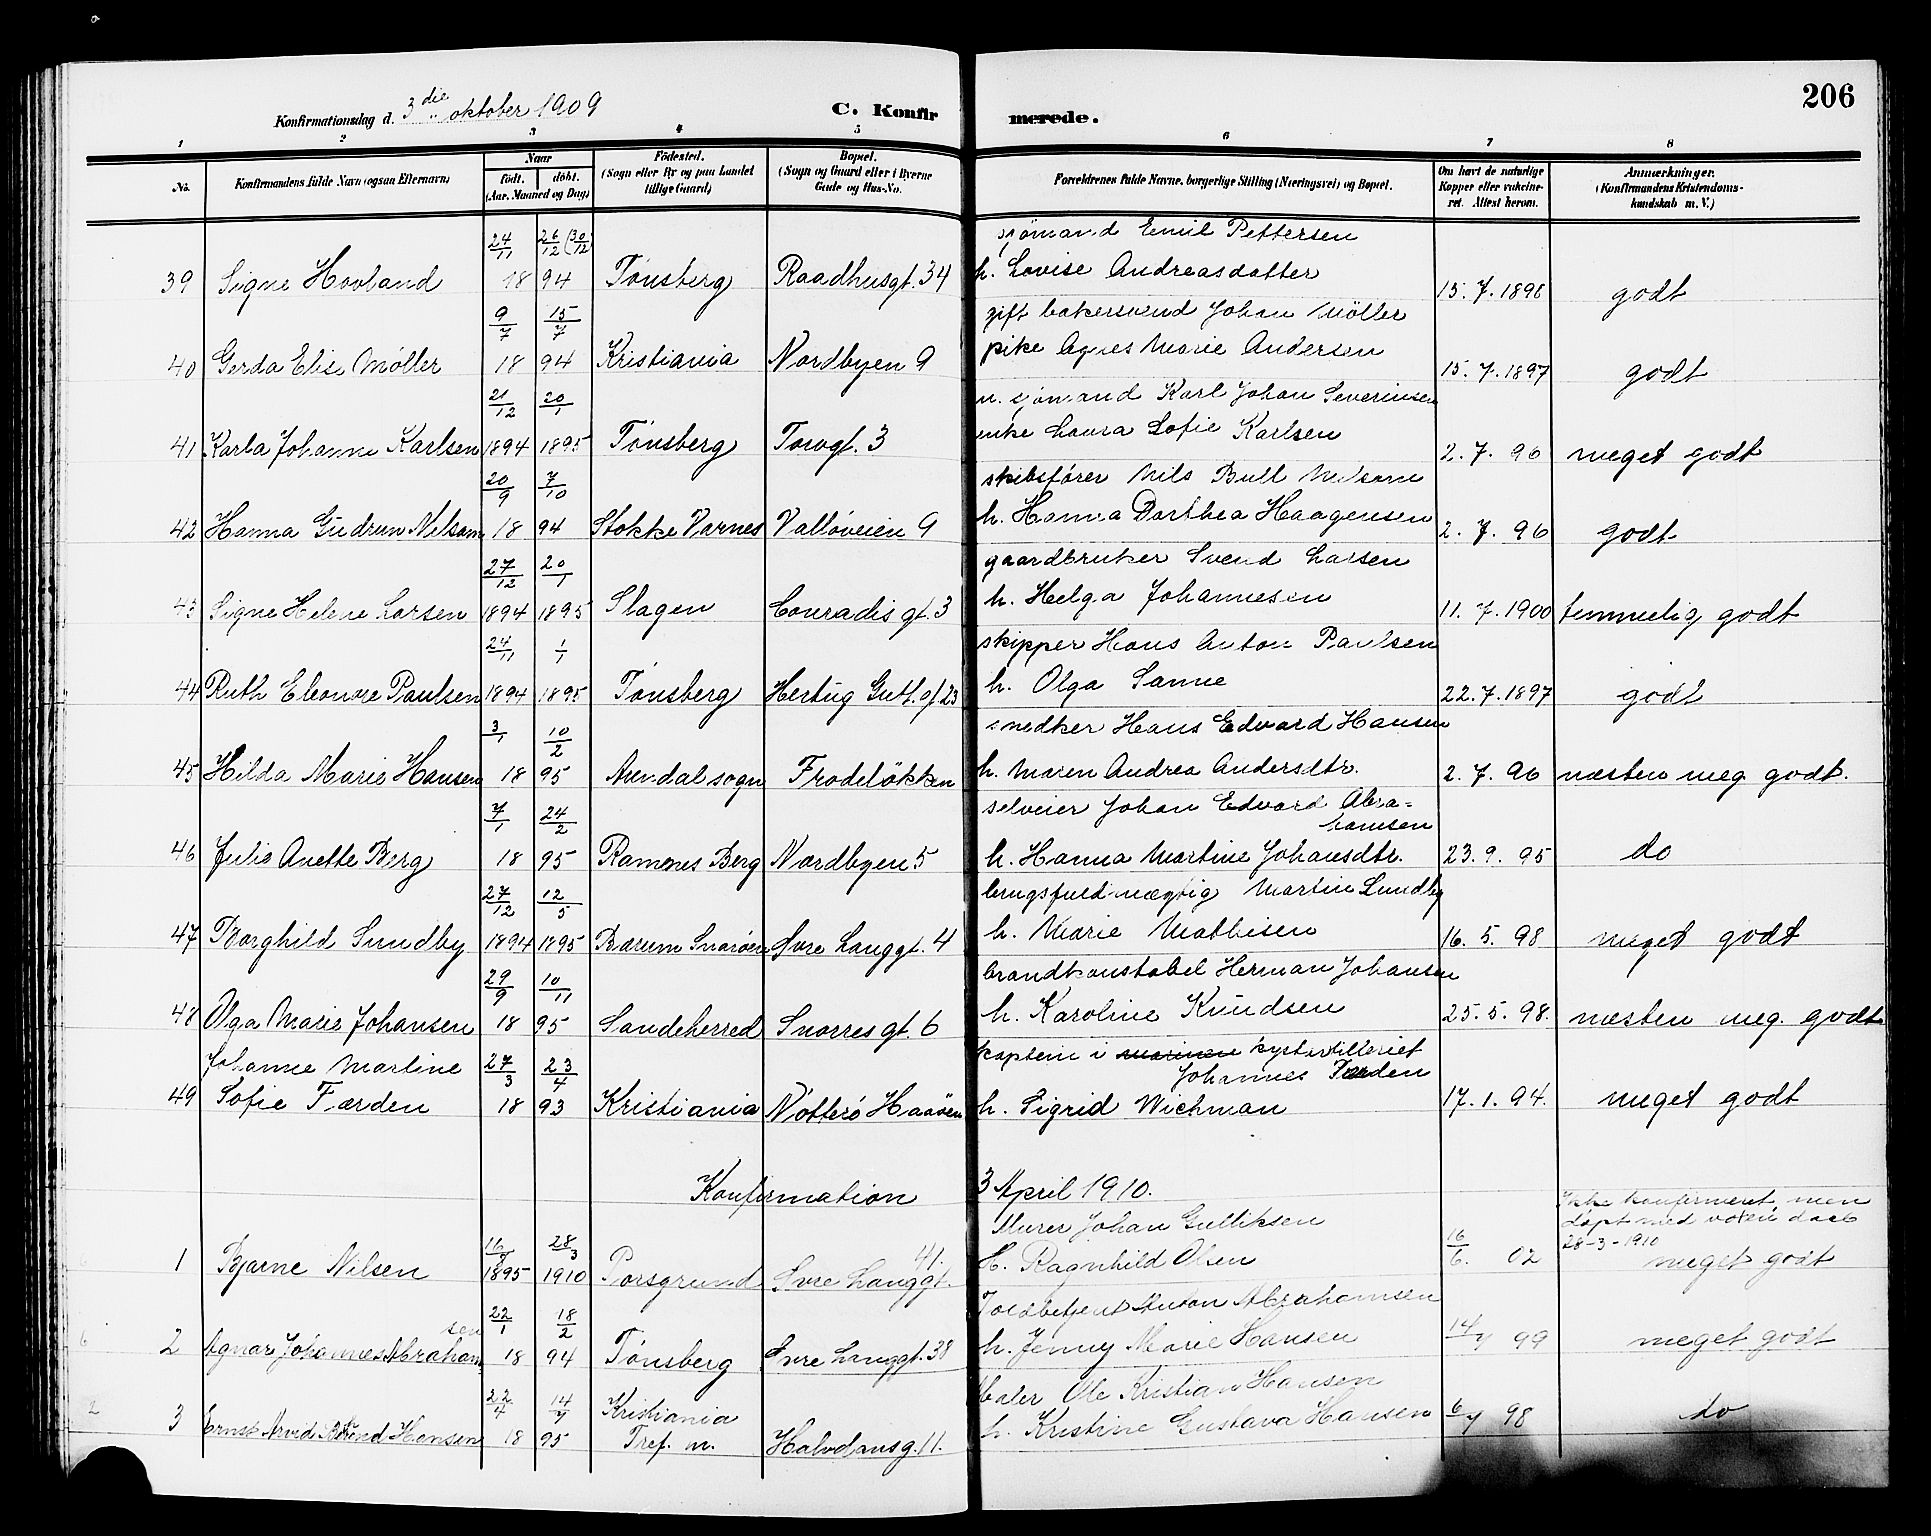 206
Konfirmationsdag d. 3die oktober 1909 C. Konfirmerede.
1 2 3 4 5 6 7 8
No. Konfirmandens fulde Navn (ogsaa Efternavn) Naar födt. döbt. (Aar, Maaned og Dag) Födested. (Sogn eller By og paa Landet tillige Gaard) Bopæl. (Sogn og Gaard eller i Byerne Gade og Hus-No. Forældrenes fulde Navne, borgerlige Stilling (Næringsvei) og Bopæl. Om havt de naturlige Kopper eller vakcineret. Attest herom. Anmærkninger. (Konfirmandens Kristendomskundskab m. V.)
24/11 26/12 (30/12) sjömand Emil Pettersen
39 Signe Hovland 18 94 Tönsberg Raadhusgt. 34 h. Lovise Andreasdatter 15. 7. 1898 godt
9/7 15/7 gift bakersvend Johan Möller
40 Gerda Elise Möller 18 94 Kristiania Nordbyen 9 pike Agnes Marie Andersen 15. 7. 1897 godt
21/12 20/1 sjömand Karl Johan Severinsen
41 Karla Johanne Karlsen 1894 1895 Tönsberg Torvgt. 3 enke Laura Sofie Karlsen 2. 7. 96 meget godt
20/9 7/10 skibsförer Nils Bull Nilsom
42 Hanna Gudrun Nilsom 18 94 Stokke Varnes Vallöveien 9 h. Hanna Dorthea Haagensen 2. 7. 96 godt
27/12 20/1 gaardbruker Svend Larsen
43 Signe Helene Larsen 1894 1895 Slagen Conradis gt. 3 h. Helga Johannesen 11. 7. 1900 temmelig godt
24/11 1/1 skipper Hans Anton Paulsen
44 Ruth Eleonore Paulsen 1894 1895 Tönsberg Hertug Gutt. gt. 23 h. Olga Sanne 22. 7. 1897 godt
3/1 10/2 snedker Hans Edvard Hansen
45 Hilda Marie Hansen 18 95 Arendal sogn Frodelökken h. Maren Andrea Andersdtr. 2. 7. 96 næsten meg. godt.
7/1 24/2 selveier Johan Edvard Abra=
hamsen
46 Julie Anette Berg 18 95 Ramnes Berg Nordbyen 5 h. Hanna Martine Johansdtr. 23. 9. 95 do
27/12 12/5 brugsfuldmægtig Martin Sundby
47 Borghild Sundby 1894 1895 Bærum Snaröen Övre Langgt. 4 h. Marie Mathisen 16. 5. 98 meget godt
29/9 10/11 brandkonstabel Herman Johansen
48 Olga Marie Johansen 18 95 Sandeherred Snorres gt. 6 h. Karoline Knudsen 25. 5. 98. næsten meg. godt
Johanne Martine 27/3 23/4 kaptein i marinen kystartilleriet
Johannes Færden
49 Sofie Færden 18 93 Kristiania Nötterö Haaöen h. Sigrid Wichman 17. 1. 94. meget godt
Konfirmation 3 April 1910.
Ikke konfirmeret, men
döpt med voxen daab
28-3-1910
28/3 Murer Johan Gulliksen
1 Bjarne Nilsen 1895 1910 Porsgrund Övre Langgt. 41. H. Ragnhild Olsen 16/6. 02 meget godt
22/1 18/2 Toldbetjent Anton Abrahamsen
2 Agnar Johannes Abrahamsen 18 94 Tönsberg Övre Langgt. 38 h. Jenny Marie Hansen 14/7 99 meget godt
22/4 14/7 Kristiania Maler Ole Kristian Hansen
3 Ernst Arvid Hansen 18 95 Tref. m. Halvdansg. 11. h. Kristine Gustava Hansen 6/7 98 do